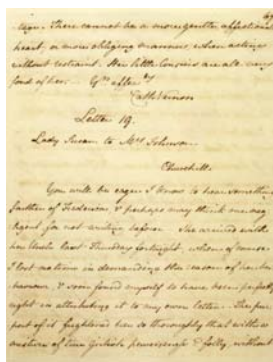 eager. There cannot be a more gentle, affectionate
heart, or more obliging manners, when acting
without restraint. Her little Cousins are all very
fond of her. Yrs affecly
Cath Vernon
Letter 19.
Lady Susan to Mrs Johnson
Churchill.
You will be eager I know to hear something
farther of Frederica, & perhaps may think me neg-
ligent for not writing before. She arrived with
her Uncle last Thursday fortnight, when of course
I lost no time in demanding the reason of her be-
haviour, & soon found myself to have been perfectly
right in attributing it to my own letter. The pur-
port of it frightened her so thoroughly that with a
mixture of true Girlish perverseness & folly, without